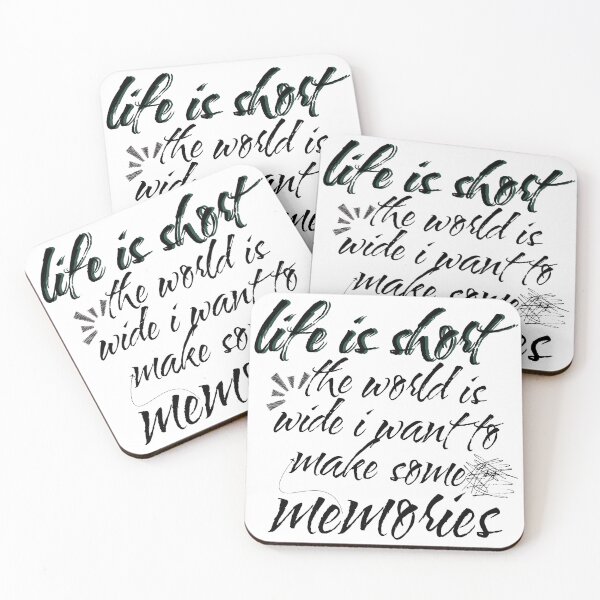 life is short
the world is
wide i want
life is short
the world is
wide i want to
make some
life is short
the world is
wide i want to
make so
memo
life is short
the world is
wide i want to
make some
memories